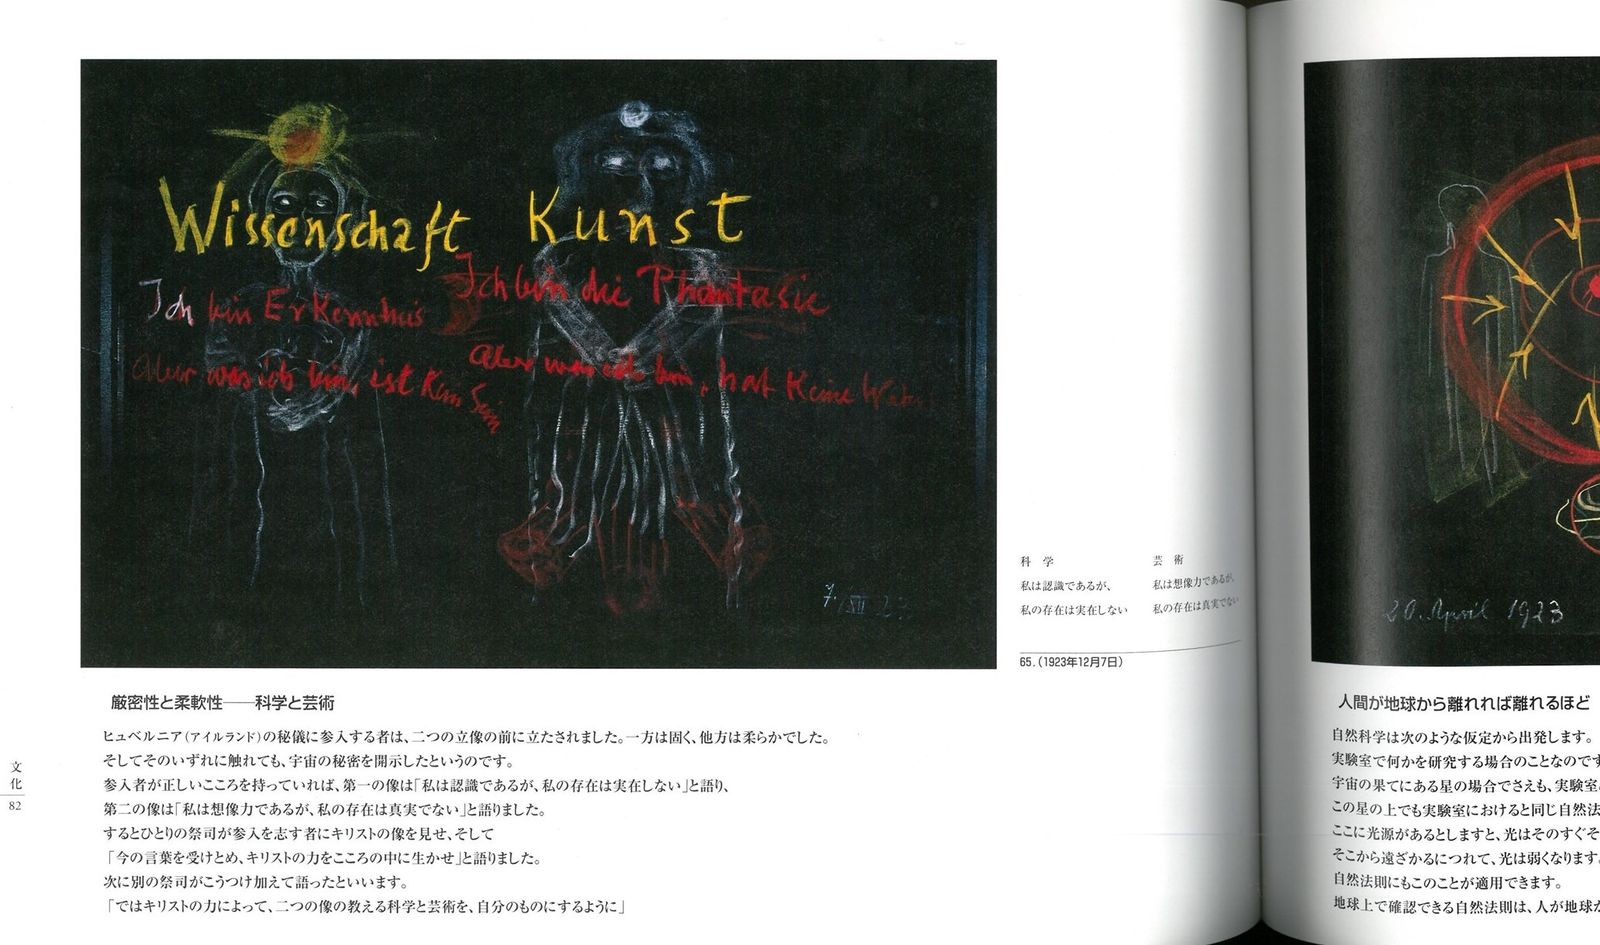 Wissenschaft Kunst
Ich bin Erkenntnis
Ich bin die Phantasie
Aber was ich bin, ist Kein Sein
Aber was ich bin, hat Keine
7. XII 23
科 学
私は認識であるが、
私の存在は実在しない
芸 術
私は想像力であるが、
私の存在は真実でない
65.（1923年12月7日）
厳密性と柔軟性──科学と芸術
ヒュベルニア（アイルランド）の秘儀に参入する者は、二つの立像の前に立たされました。一方は固く、他方は柔らかでした。
そしてそのいずれに触れても、宇宙の秘密を開示したというのです。
参入者が正しいこころを持っていれば、第一の像は「私は認識であるが、私の存在は実在しない」と語り、
第二の像は「私は想像力であるが、私の存在は真実でない」と語りました。
するとひとりの祭司が参入を志す者にキリストの像を見せ、そして
「今の言葉を受けとめ、キリストの力をこころの中に生かせ」と語りました。
次に別の祭司がこうつけ加えて語ったといいます。
「ではキリストの力によって、二つの像の教える科学と芸術を、自分のものにするように」
文化
82
20. April 1923
人間が地球から離れれば離れるほど
自然科学は次のような仮定から出発します。
実験室で何かを研究する場合のことなのです
宇宙の果てにある星の場合でさえも、実験室
この星の上でも実験室におけると同じ自然法
ここに光源があるとしますと、光はそのすぐそ
そこから遠ざかるにつれて、光は弱くなります。
自然法則にもこのことが適用できます。
地球上で確認できる自然法則は、人が地球か